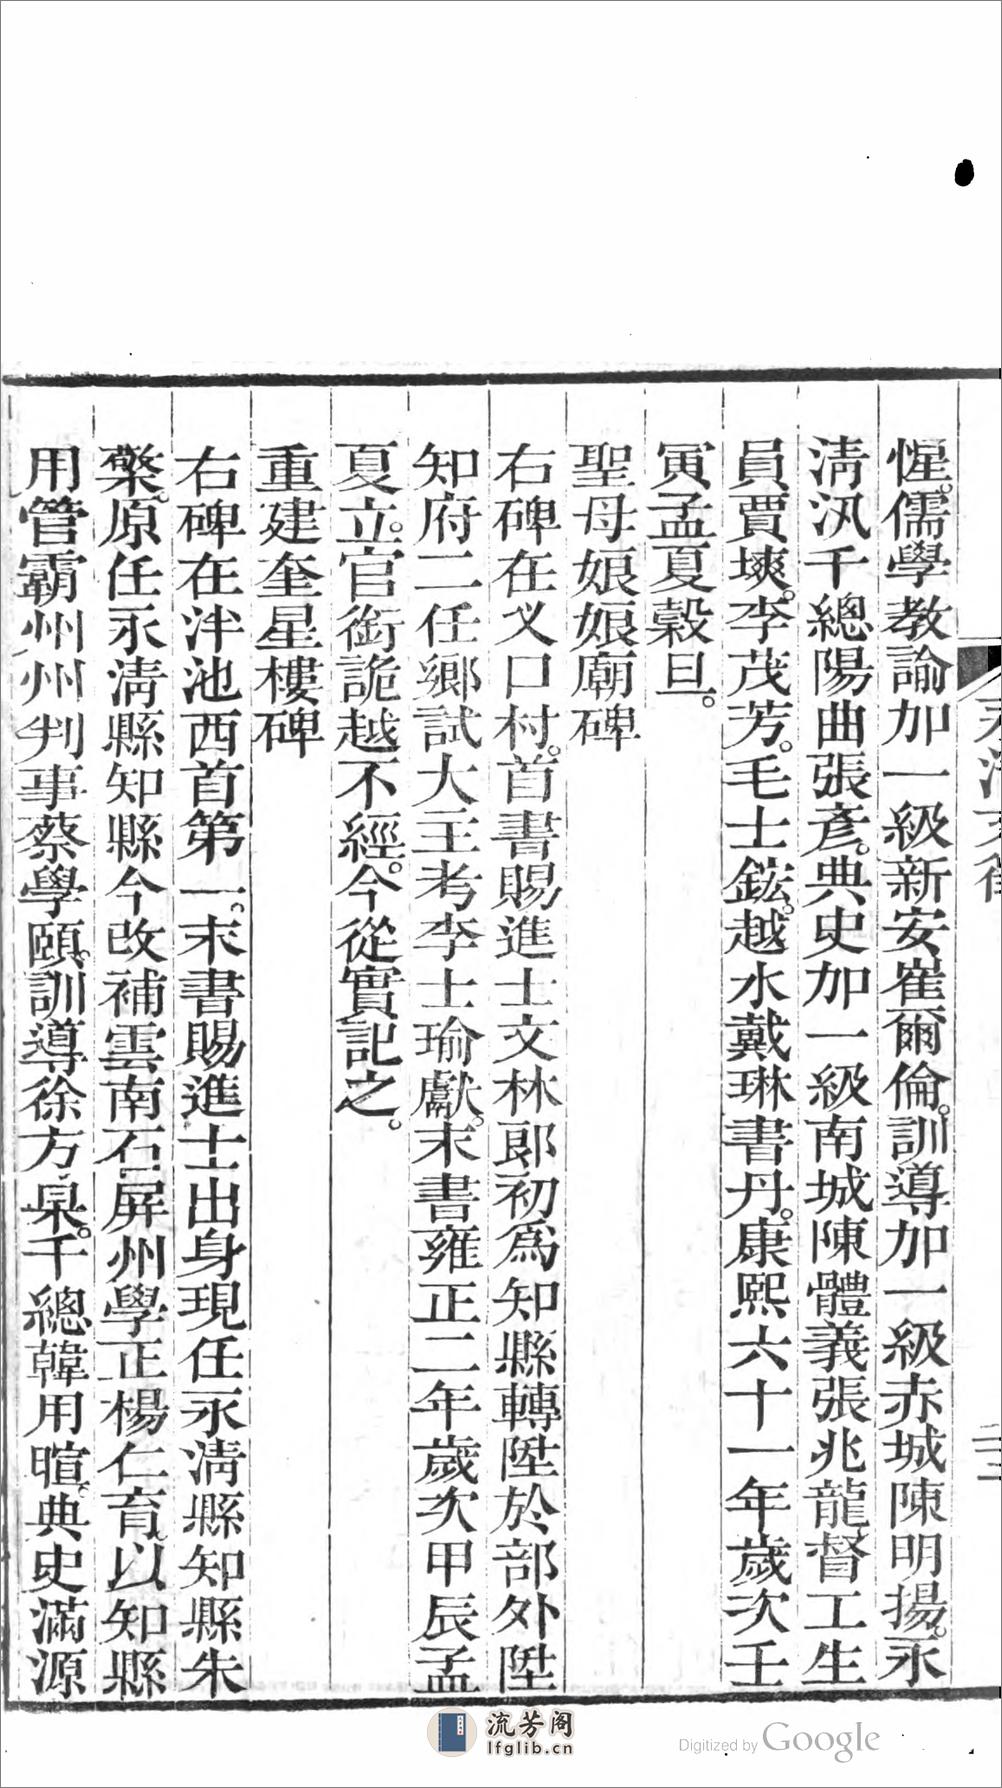 惺。儒學教諭加一級新安崔爾倫。訓導加一級赤城陳明揚。永
淸汛千總陽曲張彥。典史加一級南城陳體義張兆龍督工生
員賈㙇。李茂芳。毛士鋐。越水戴琳書丹。康熙六十一年歲次壬
寅孟夏穀旦。
聖母娘娘廟碑
右碑在义口村。首書賜進士文林郎初爲知縣轉陞於部外陞
知府二任鄉試大主考李士瑜獻。末書雍正二年歲次甲辰孟
夏立。官銜詭越不經。今從實記之。
重建奎星樓碑
右碑在泮池西首第一。末書賜進士出身現任永淸縣知縣朱
櫫。原任永淸縣知縣今改補雲南石屏州學正楊仁育。以知縣
用管霸州州判事蔡學頤。訓導徐方臬。千總韓用暄。典史滿源
流芳阁
lfglib.cn
Digitized by Google